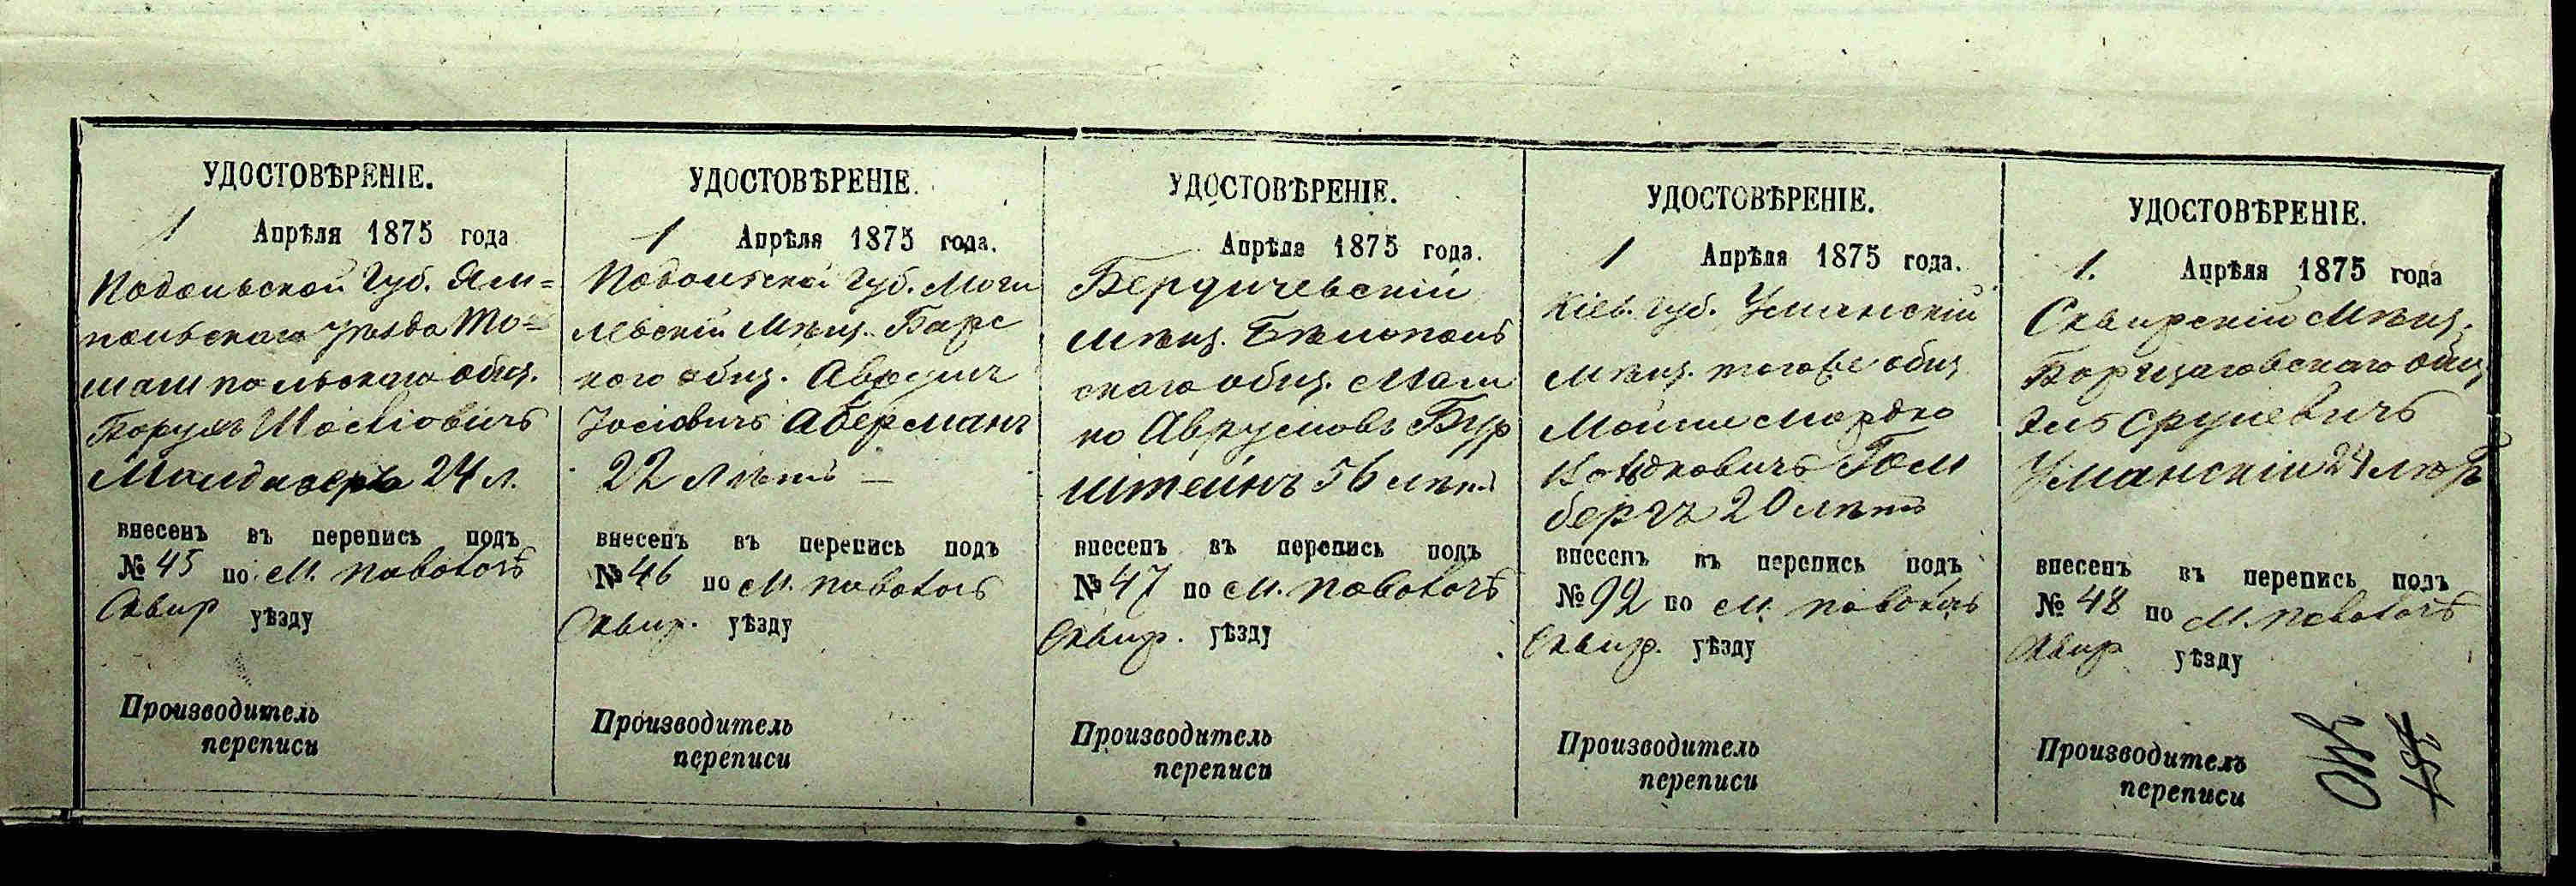 УДОСТОВѢРЕНІЕ.
1 Апрѣля 1875 года
Подольской Губ. Ям=
польскаго уѣзда То=
машпольскаго общ.
Борухъ
24 л.
внесенъ въ перепись подъ
№ 45 по М. Паволочѣ
Сквир уѣзду
Производитель
переписи
УДОСТОВѢРЕНІЕ.
1 Апрѣля 1875 года.
Подольской Губ. Моги
левскій Мѣщ. Барс
кого общ. Аврумъ
Іосіовичъ Аберманъ
22 лѣтъ —
внесенъ въ перепись подъ
№ 46 по М. Паволочѣ
Сквир. уѣзду
Производитель
переписи
УДОСТОВѢРЕНІЕ.
Апрѣля 1875 года.
Бердичевскій
мѣщ. Бѣлополь
скаго общ. Мош
ко Аврумовъ Бур
штейнъ 56 лѣтъ
внесенъ въ перепись подъ
№ 47 по М. Паволочѣ
Сквир. уѣзду
Производитель
переписи
УДОСТОВѢРЕНІЕ.
1 Апрѣля 1875 года.
Кіев. губ. Уманскій
мѣщ. того же общ
Мошко Мордко
Гом
бергъ 20 лѣтъ
внесенъ въ перепись подъ
№ 92 по М. Паволочѣ
Сквир. уѣзду
Производитель
переписи
УДОСТОВѢРЕНІЕ.
1. Апрѣля 1875 года
Сквирскій Мѣщ.
Борщаговскаго общ
Эль Срулевичъ
Уманскій 24 лѣтъ
внесенъ въ перепись подъ
№ 48 по М. Паволочѣ
Сквир уѣзду
Производитель
переписи